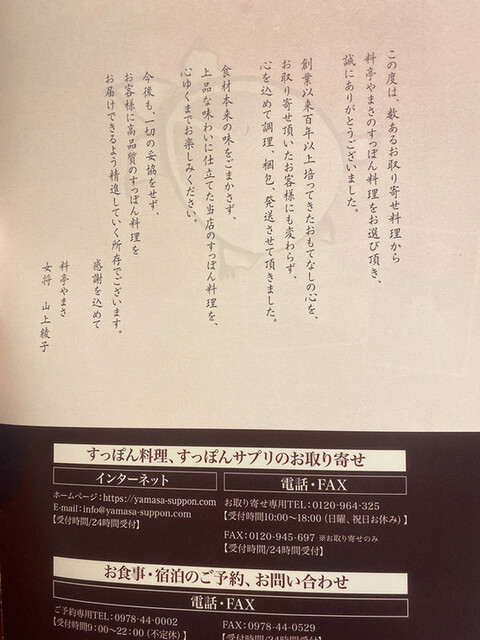 この度は、数あるお取り寄せ料理から
料亭やまさのすっぽん料理をお選び頂き、
誠にありがとうございました。
創業以来百年以上培ってきたおもてなしの心を、
お取り寄せ頂いたお客様にも変わらず、
心を込めて調理、梱包、発送させて頂きました。
食材本来の味をごまかさず、
上品な味わいに仕立てた当店のすっぽん料理を、
心ゆくまでお楽しみください。
今後も、一切の妥協をせず、
お客様に高品質のすっぽん料理を
お届けできるよう精進していく所存でございます。
感謝を込めて
料亭やまさ
女将 山上綾子
すっぽん料理、すっぽんサプリのお取り寄せ
インターネット
ホームページ:https://yamasa-suppon.com
E-mail:info@yamasa-suppon.com
【受付時間/24時間受付】
電話・FAX
お取り寄せ専用TEL:0120-964-325
【受付時間10:00~18:00(日曜、祝日お休み)】
FAX:0120-945-697 ※お取り寄せのみ
【受付時間/24時間受付】
お食事・宿泊のご予約、お問い合わせ
電話・FAX
ご予約専用TEL:0978-44-0002
【受付時間9:00~22:00(不定休)】
FAX:0978-44-0529
【受付時間/24時間受付】